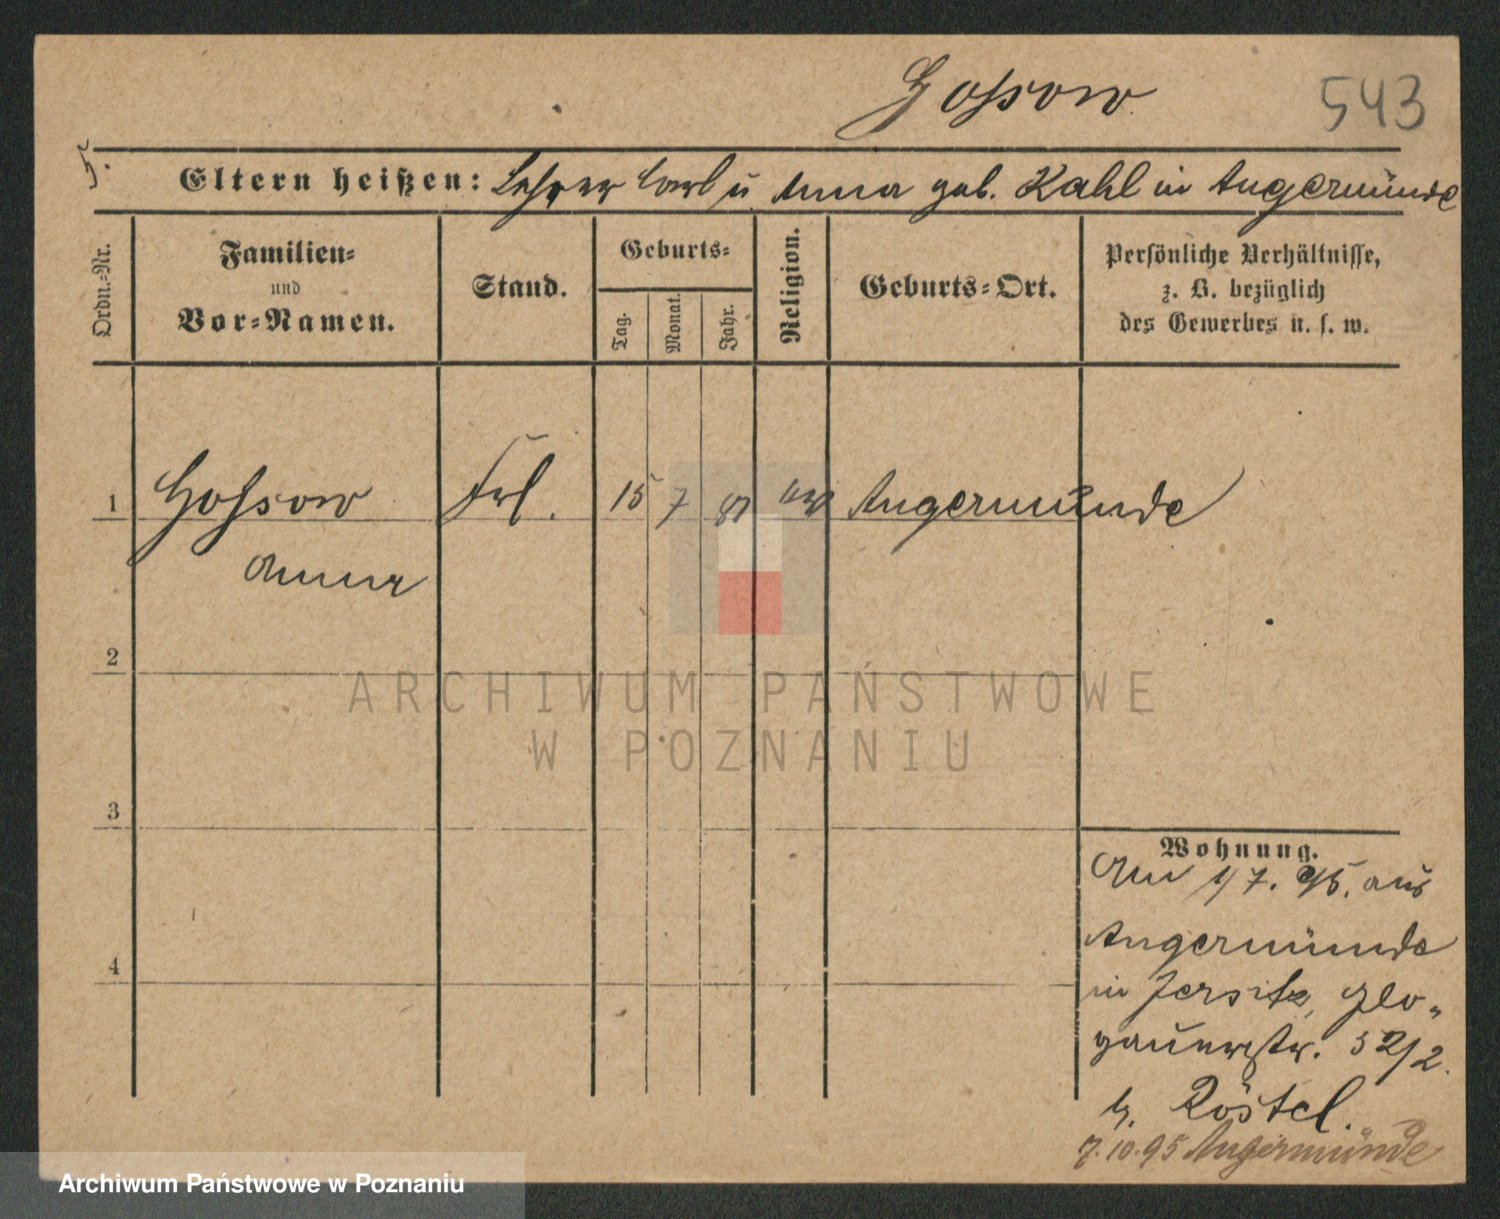 Hossow
543
Eltern heißen: Lehrer Carl u Anna geb. Kahl in Angermünde
Ordn.-Nr.
Familien-
und
Vor-Namen.
Stand.
Geburts-
Tag.
Monat.
Jahr.
Religion.
Geburts-Ort.
Persönliche Verhältnisse,
z. B. bezüglich
des Gewerbes u. s. w.
1 Hossow Frl. 15 7 ev Angermünde
Anna
2
ARCHIWUM PAŃSTWOWE
W POZNANIU
3
Wohnung.
Am 1/7. 95. aus
4
Angermünde
in Jersitz, Glo-
gauerstr. 52/2.
b. Röstel.
7.10.95 Angermünde
Archiwum Państwowe w Poznaniu